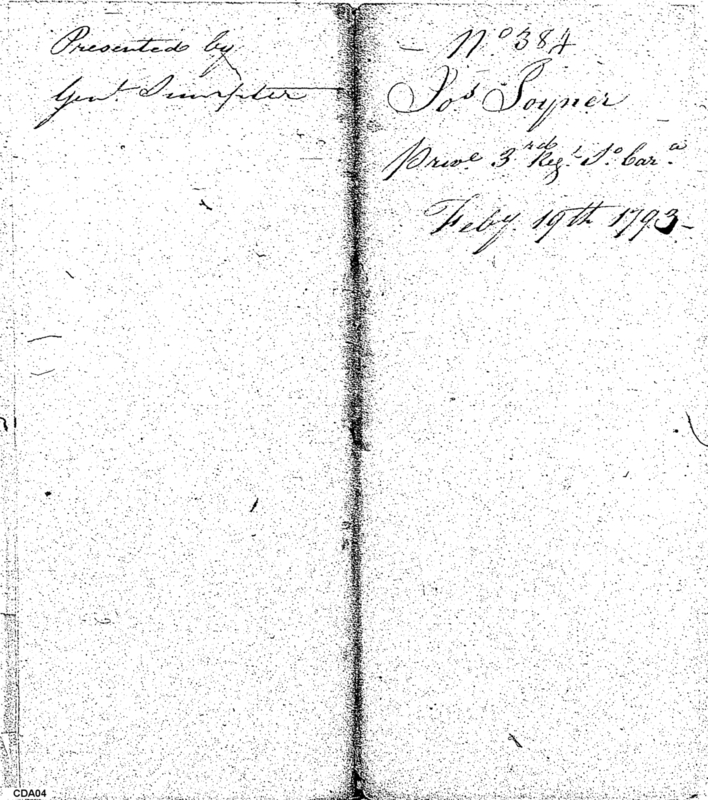 Presented by
Genl. Sumpter
No 384
Jos Joyner
Prive 3rd Regt So Cara
Feby 19th 1793
CDA04